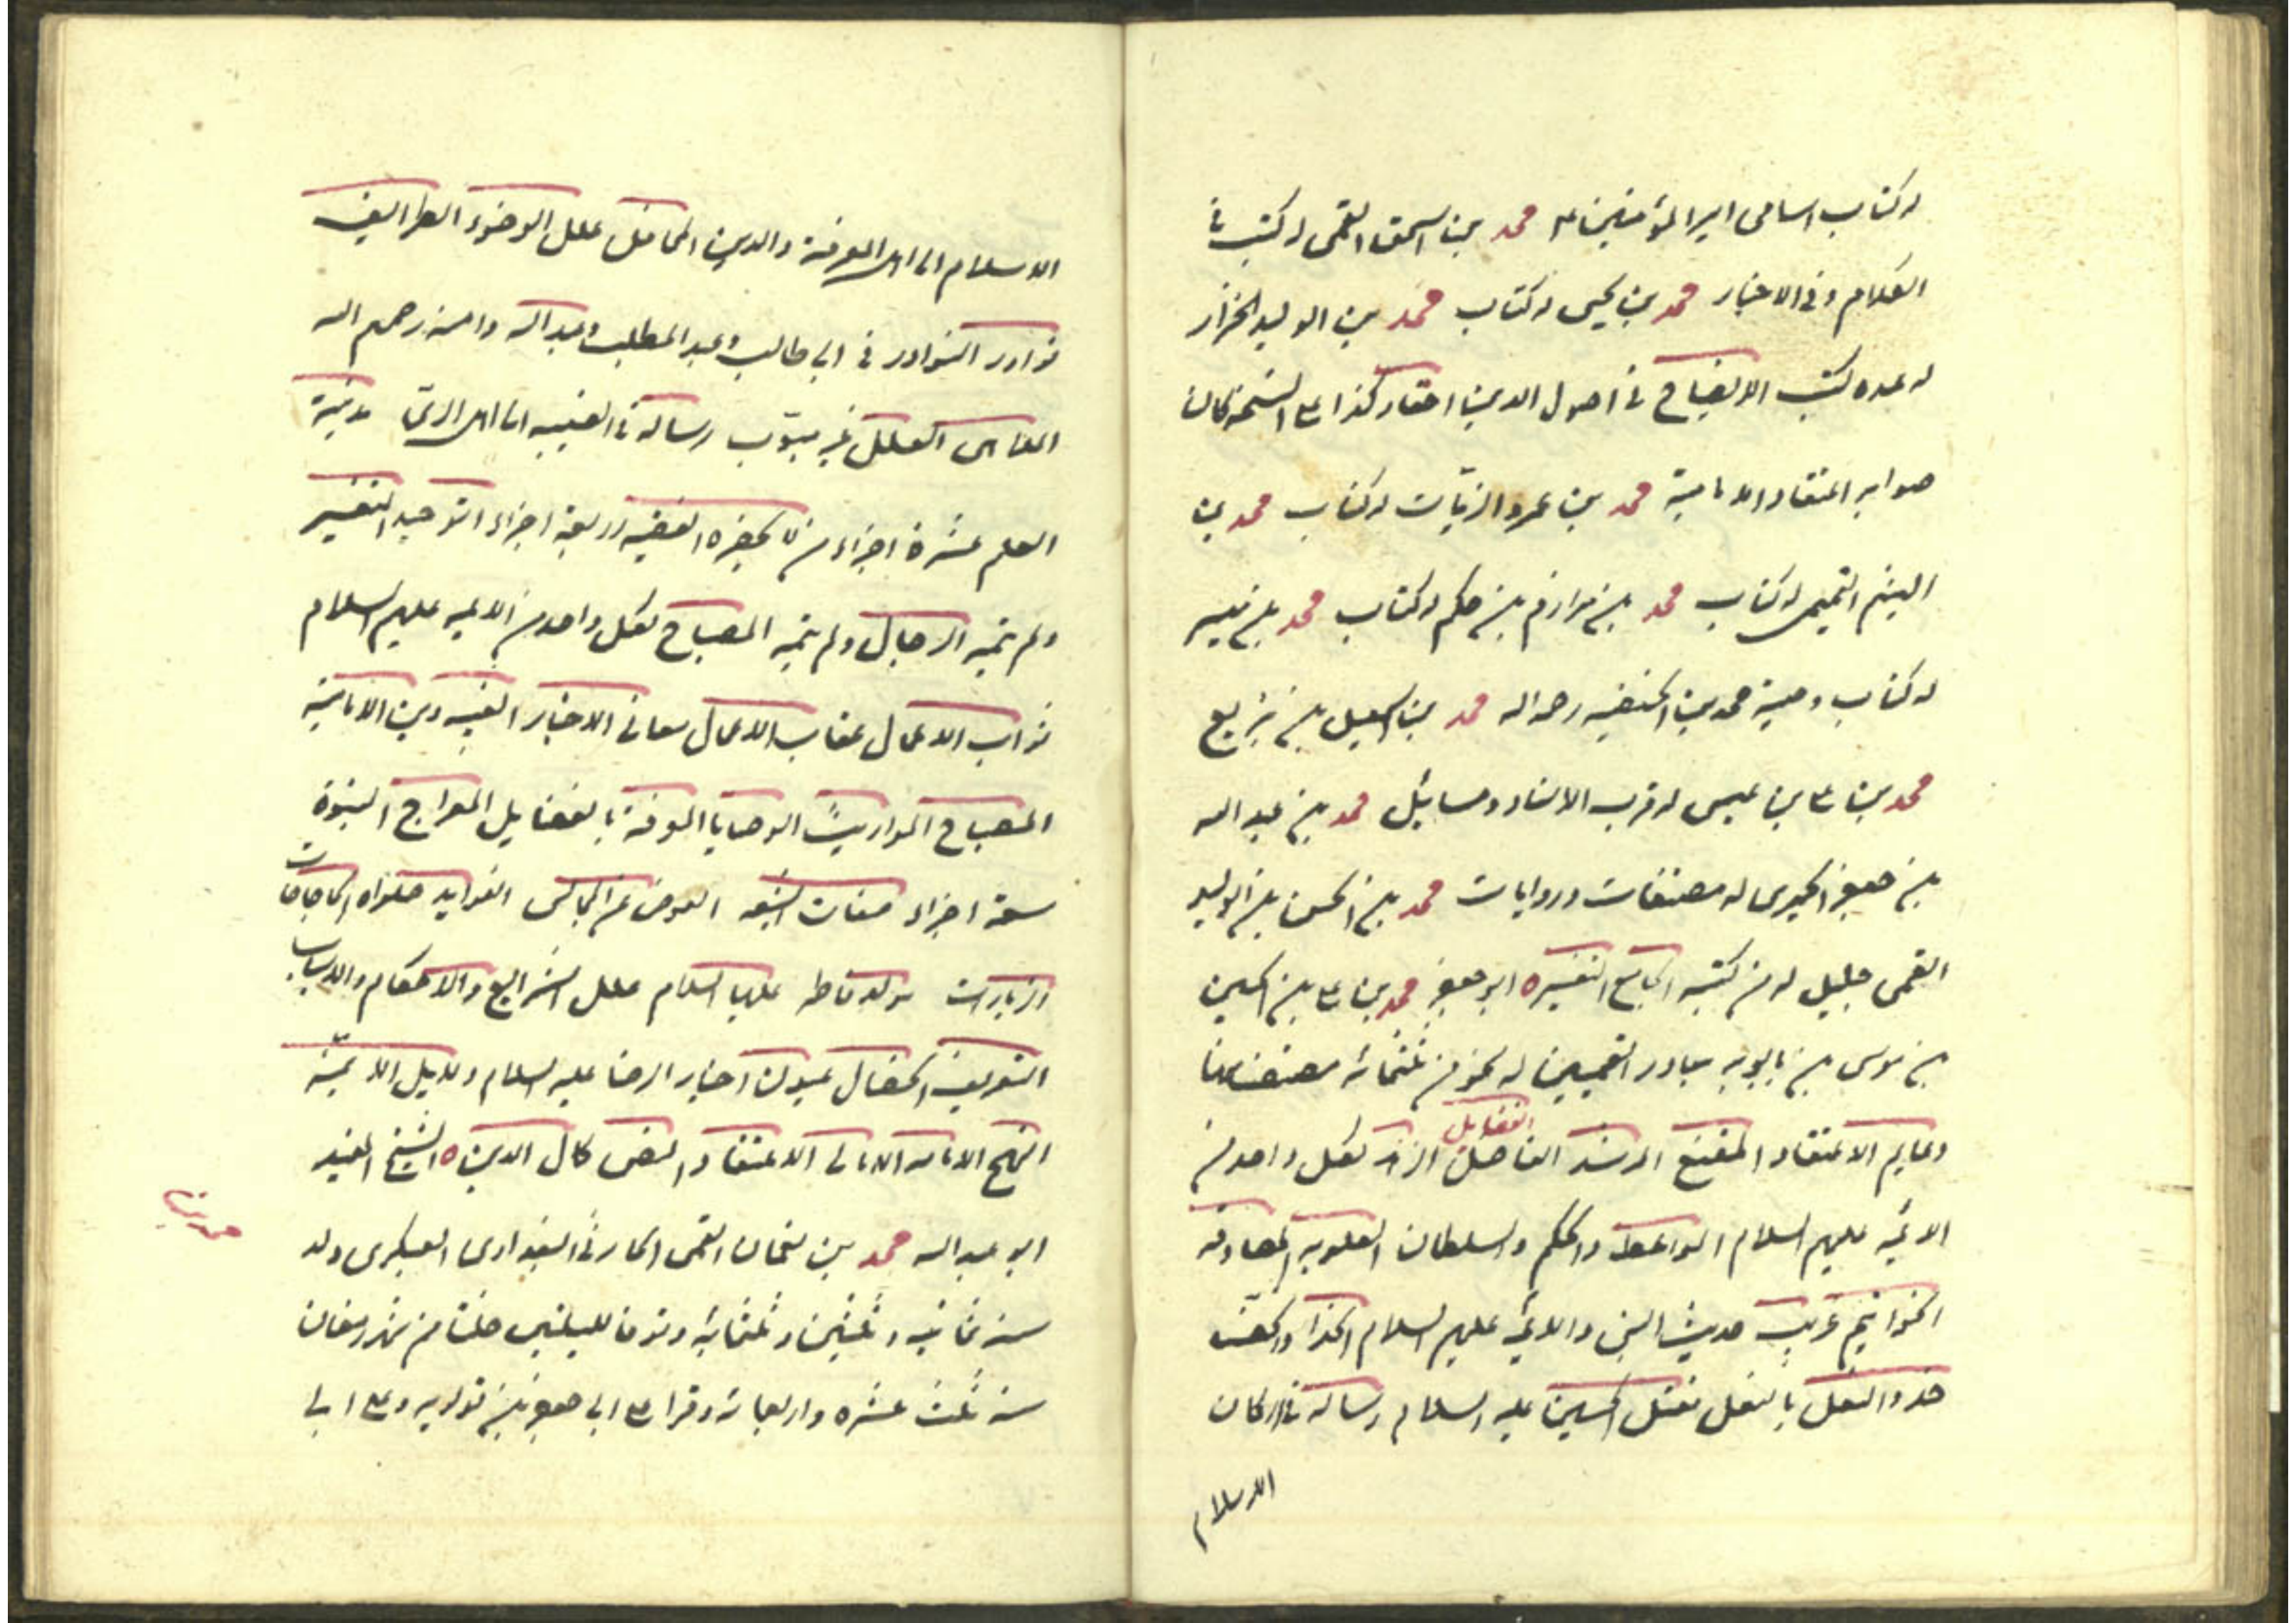 له كتاب اسامى امير المؤمنين ع محمد بن اسحق القمى له كتب فى
الكلام وفى الاخبار محمد بن يحيى له كتاب محمد بن الوليد الخزاز
له عده كتب الايضاح فى اصول الدين اعتقاد كذا على النسخه كان
صوابه اعتقاد الامامية محمد بن عمرو الزيّات له كتاب محمد بن
الهيثم التميمى له كتاب محمد بن مرازم بن حكيم له كتاب محمد بن قيس
له كتاب وصية محمد بن الحنفيه رحمه الله محمد بن اسمعيل بن بزيع
محمد بن على بن عيسى له قرب الاسناد ومسائل محمد بن عبد الله
بن جعفر الحميرى له مصنفات وروايات محمد بن الحسن بن الوليد
القمى جليل له من كتبه الجامع التفسيره ابو جعفر محمد بن على بن الحسين
بن موسى بن بابويه القميين له نحو من ثلثمائه مصنف منها
دعايم الاعتقاد المقنع المرشد الفاضل الفضايل لكل واحد من
الائمه عليهم السلام المواعظ والحكم والسلطان العلويه المصادقه
الخواتيم غريب حديث النبى والائمه عليهم السلام الحذا والخف
حذو النعل بالنعل مقتل الحسين عليه السلام رساله فى اركان
الاسلام
الاسلام الى اهل المعرفة والدين المحافل علل الوضوء الطرايف
نوادر النوادر فى ابى طالب وعبد المطلب وعبد الله وامنه رحمهم الله
الملاهى العلل غير مبوّب رساله فى الغيبه الى اهل الرىّ مدينة
العلم عشرة اجزاء من لا يحضره الفقيه اربعة اجزاء التوحيد التفسير
ولم يتمه الرجال ولم يتمه المصباح لكل واحد من الائمه عليهم السلام
ثواب الاعمال عقاب الاعمال معانى الاخبار الغيبه دين الاماميه
المصباح المواريث الوصايا المعرفة بالفضايل المعراج النبوة
سعة اجزاء صفات الشيعه العوض عن المجالس الفوايد صلواة الحاجات
الزيارات مولد فاطمه عليها السلام علل الشرايع والاحكام والاسباب
التعريف الخصال عيون اخبار الرضا عليه السلام دلايل الائمّه
النهج الامامه الامالى الاعتقاد النص كمال الدين ه الشيخ المفيد
ابو عبد الله محمد بن نعمان القمى الحارثى البغدادى العكبرى ولد
سنه ثمانيه وثلثين وثلثمائه وتوفى لليلتين خلتا من شهر رمضان
سنه ثلث عشره واربعمائه وقرا على ابى جعفر بن قولويه وعلى ابى